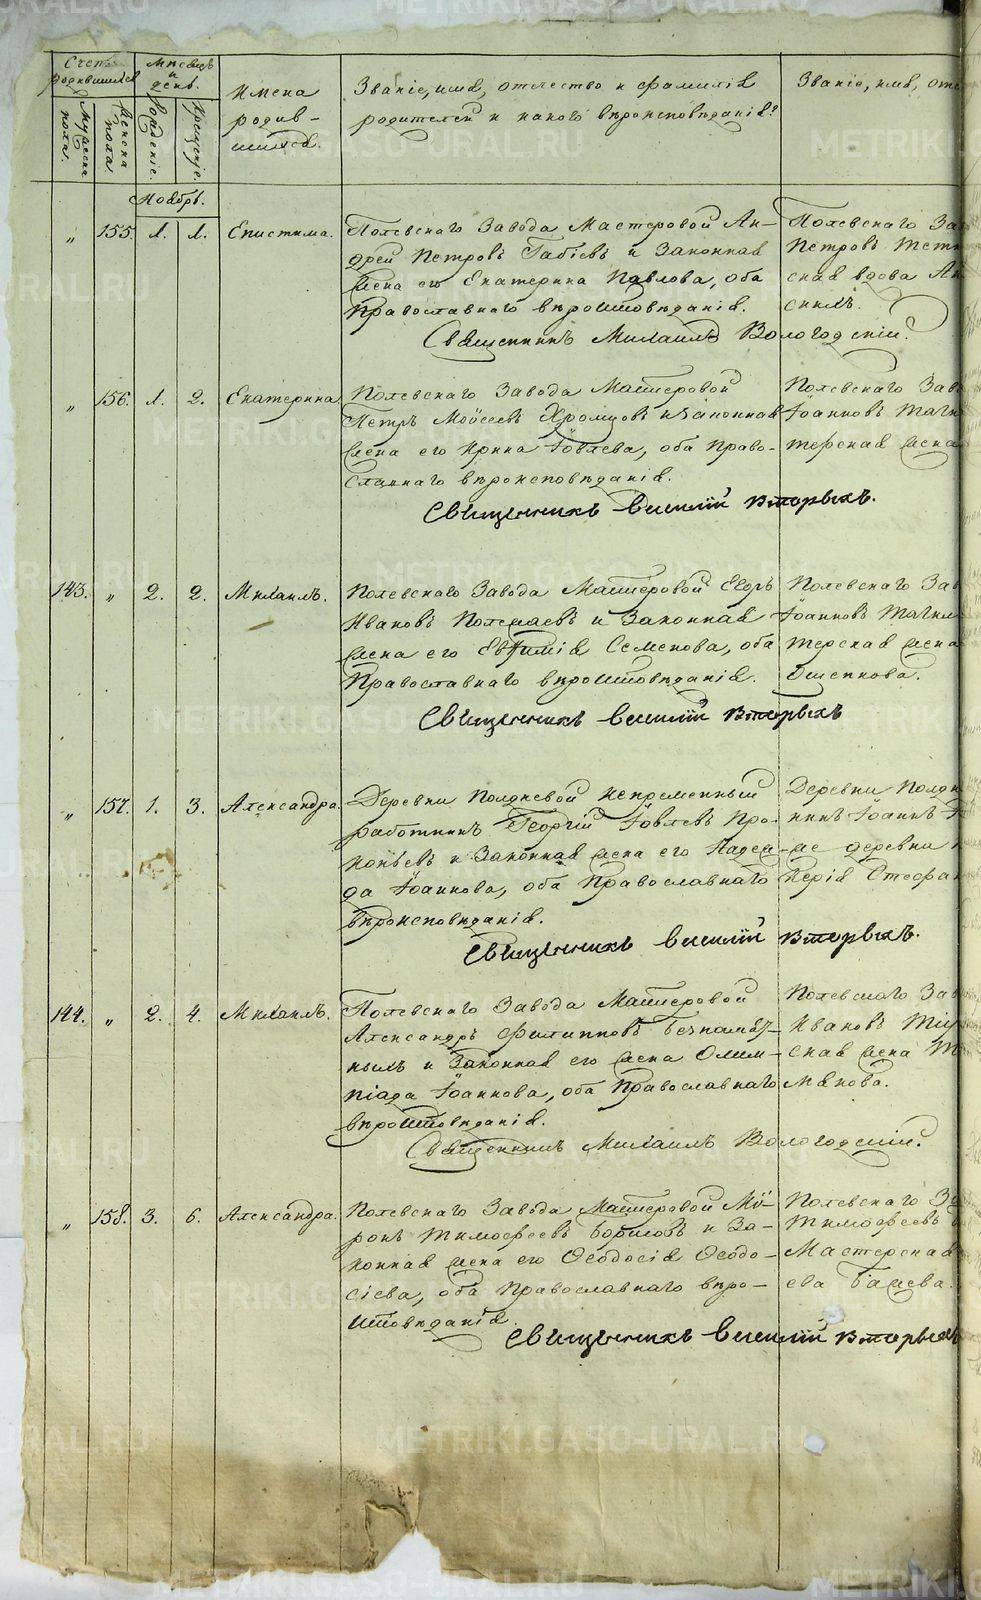 Счетъ родившихся
Мѣсяцъ и день.
Имена родившихся.
Званіе, имя, отчество и фамилія
родителей и какого вѣроисповѣданія?
Званіе, имя, отче
Мужеска пола.
Женска пола.
Рожденіе.
Крещеніе.
Ноябрь.
" 155. 1. 1. Епистима.
Полевскаго Завода Мастеровой Ан-
дрей Петровъ и Законная
жена его Екатерина Павлова, оба
Православнаго вѣроисповѣданія.
Священникъ Михаилъ Вологодскій.
Полевскаго За
Петровъ
ская вдова
" 156. 1. 2. Екатерина.
Полевскаго Завода Мастеровой
Петръ Моѵсеевъ Хромцовъ и Законная
жена его Ирина Іовлева, оба Право-
славнаго вѣроисповѣданія.
Священникъ Василій Вторыхъ.
Полевскаго Зав
Іоанновъ
терская жена
143. " 2. 2. Михаилъ.
Полевскаго Завода Мастеровой Егоръ
Ивановъ Полежаевъ и Законная
жена его Евѳимія Семенова, оба
Православнаго вѣроисповѣданія.
Священникъ Василій Вторыхъ
Полевскаго Зав
Іоанновъ
терская жена
" 157. 1. 3. Александра.
Деревни Полдневой непременный
работникъ Георгій Іовлевъ Про-
копьевъ и Законная жена его Надеж-
да Іоаннова, оба Православнаго
вѣроисповѣданія.
Священникъ Василій Вторыхъ.
Деревни Полдн
никъ Іоаннъ
же деревни
Стефан
144. " 2. 4. Михаилъ.
Полевскаго Завода Мастеровой
Александръ Филипповъ
ныхъ и Законная его жена Олим-
піада Іоаннова, оба Православнаго
вѣроисповѣданія.
Священникъ Михаилъ Вологодскій.
Полевскаго Зав
Ивановъ
ская жена
" 158. 3. 6. Александра.
Полевскаго Завода Мастеровой Мѵ-
ронъ Тимофеевъ и За-
конная жена его Ѳеодосія Ѳеодо-
сіева, оба Православнаго вѣро-
исповѣданія.
Священникъ Василій Вторыхъ
Полевскаго За
Тимофеевъ
Мастерская
ева
METRIKI.GASO-URAL.RU